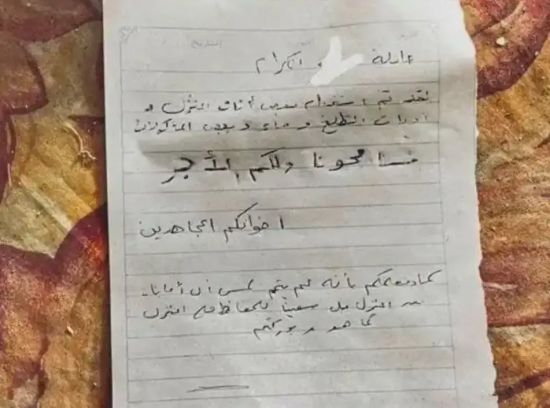 عائلة الكرام
لقد تم استخدام بعض أثاث المنزل و
أدوات الطبخ و ماء و بعض المأكولات
فسامحونا ولكم الأجر
اخوانكم المجاهدين
كما نعلمكم بأنه لم يتم لمس أي أمانات
المنزل بل سعينا للحفاظ المنزل
كما هو